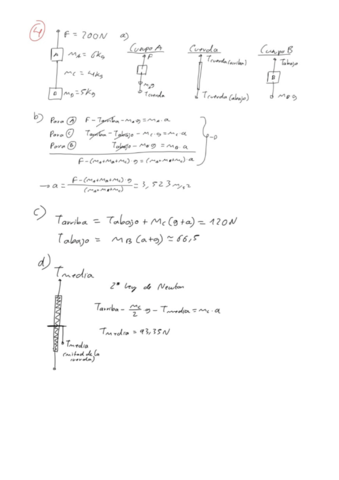 4
F = 200N
a)
Cuerpo A
Cuerda
Cuerpo B
F
Tcuerda(arriba)
Tabajo
A
mA = 6kg
mC = 4kg
B
mB = 5kg
mAg
Tcuerda
Tcuerda(abajo)
B
mBg
b)
Para A F - Tarriba - mAg = mA·a
Para C Tarriba - Tabajo - mCg = mC·a
Para B Tabajo - mBg = mB·a
F - (mA+mB+mC) g = (mA+mB+mC) a
→ a = F - (mA+mB+mC) g / (mA+mB+mC) = 3,523 m/s²
c)
Tarriba = Tabajo + mC (g+a) = 120N
Tabajo = mB (a+g) ≈ 66,5
d)
Tmedia
2ª Ley de Newton
Tarriba - mC/2 g - Tmedia = mC·a
Tmedia = 93,35N
Tmedia
(mitad de la
cuerda)